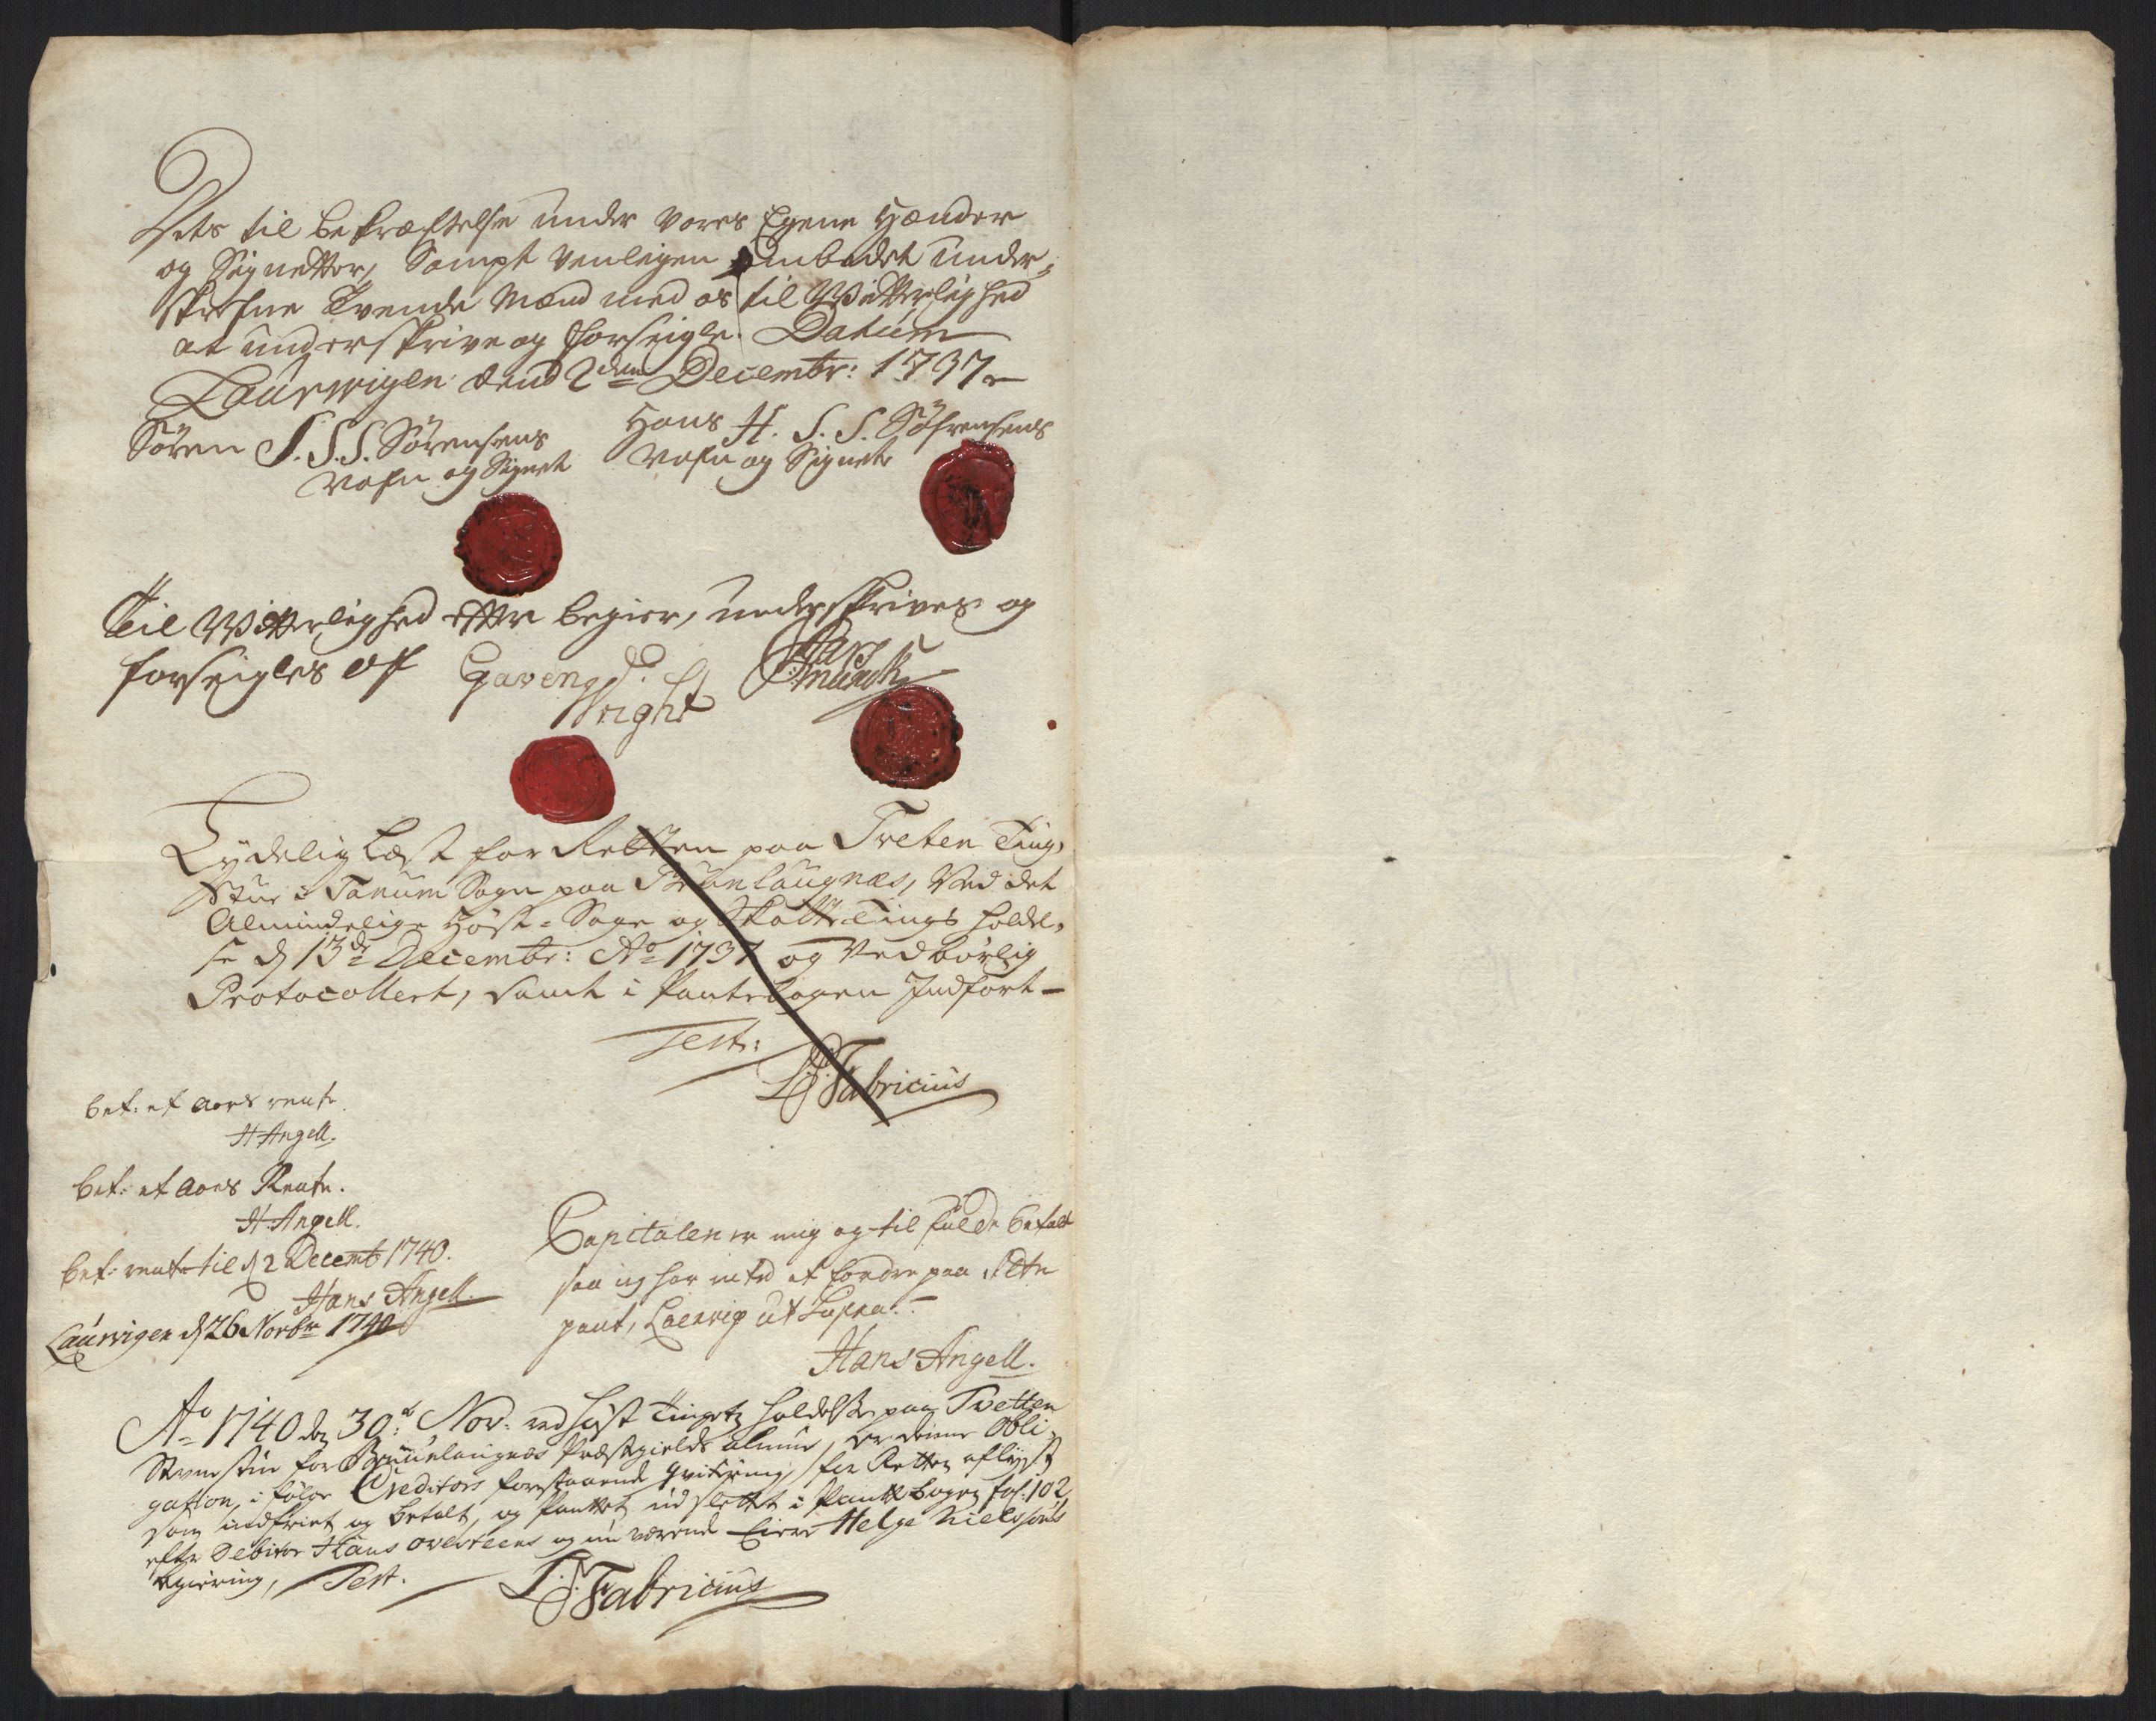 Dets til bekræftelse under vores Egene Hænder
og Signetter, Sampt venligen ombedet under-
skrefne Tvende Mænd med os til Witterlighed
at underskrive og forseigle. Datum
Laurwigen dend 2den Decembr: 1737
Søren S. S. S. Sørensens
Nafn og Signet
Hans H. S. S. Søfrensens
Nafn og Signete
Til Witterlighed effter begier, underskrives og
forseigles af
Wright
Munch
Tydelig Læst for Retten paa Tveten Ting-
Stue i Tanum Sogn paa Brunlaugnæs, Ved det
Almindelige Høst-Sage og Skatte-Tings holdel-
se d 13de Decembr: Ao 1737 og Vedbørlig
Protocollert, samt i Pantebogen Indført-
Test:
Fabricius
bet: et aars rente.
H Angell.
bet: et aars Rente.
H. Angell.
bet: rente til d 2 Decemb 1740.
Hans Angell.
Laurvigen d 26 Novbr 1740
Capitalen er mig og til fulde betalt
saa ieg har inted at fordre paa dette
pant, Laervig ut Supra.
Hans Angell.
Ao 1740 den 30t Nov: ved høst Tingetz holdelse paa Tvetten
Stvuestue for Brunelaugnæs Præstegields almue, er denne Obli-
gation, i følge Creditors forestaaende Qvitering, for Retten aflyst
som indfriet og betalt, og Panttet udslettet i Pantebogen fol: 102
efter Debitor Hans Overteens og nu værende Eiere Helge Nielssøns
begiering, Test.
Fabricius